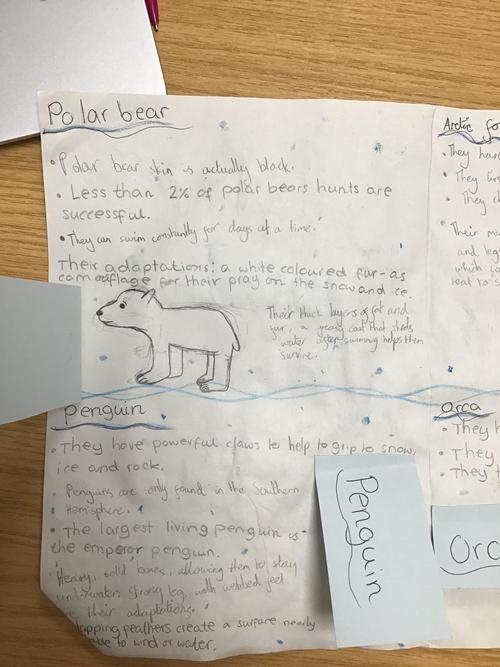 Polar bear
• Polar bear skin is actually black.
• Less than 2% of polar bears hunts are
successful.
• They can swim constantly for days at a time.
Their adaptations: a white coloured fur-as
camouflage for their pray on the snow and ice.
Their thick layers of fat and
fur, a greasy coat that sheds
water after swimming helps them
survive.
Penguin
• They have powerful claws to help to grip to snow,
ice and rock.
• Penguins are only found in the Southern
Hemisphere.
• The largest living penguin is
the emperor penguin.
Heavy, solid bones, allowing them to stay
underwater, webbed feet
their adaptations.
lapping feathers create a surface nearly
to wind or water.
Penguin
Arctic fo
• They
They
• They
Their
and
which
Orca
• They h
• They
• They
Orc